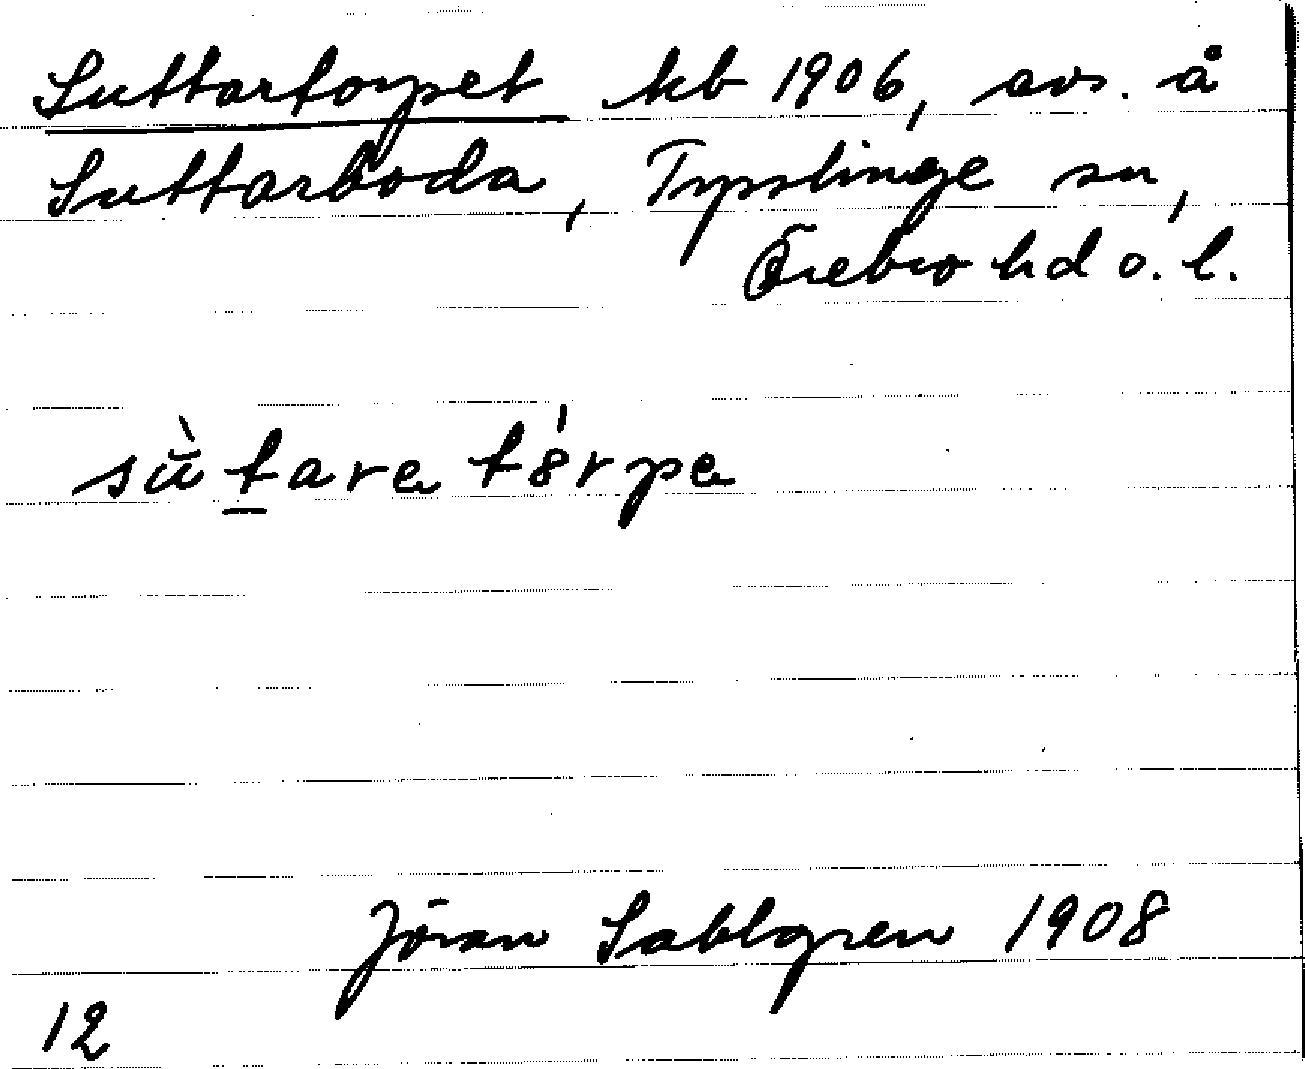 Suttartorpet kb 1906, avs. å
Suttarboda, Tysslinge sn,
Örebro hd o. l.
sùtara tórpa
Jöran Sahlgren 1908
12